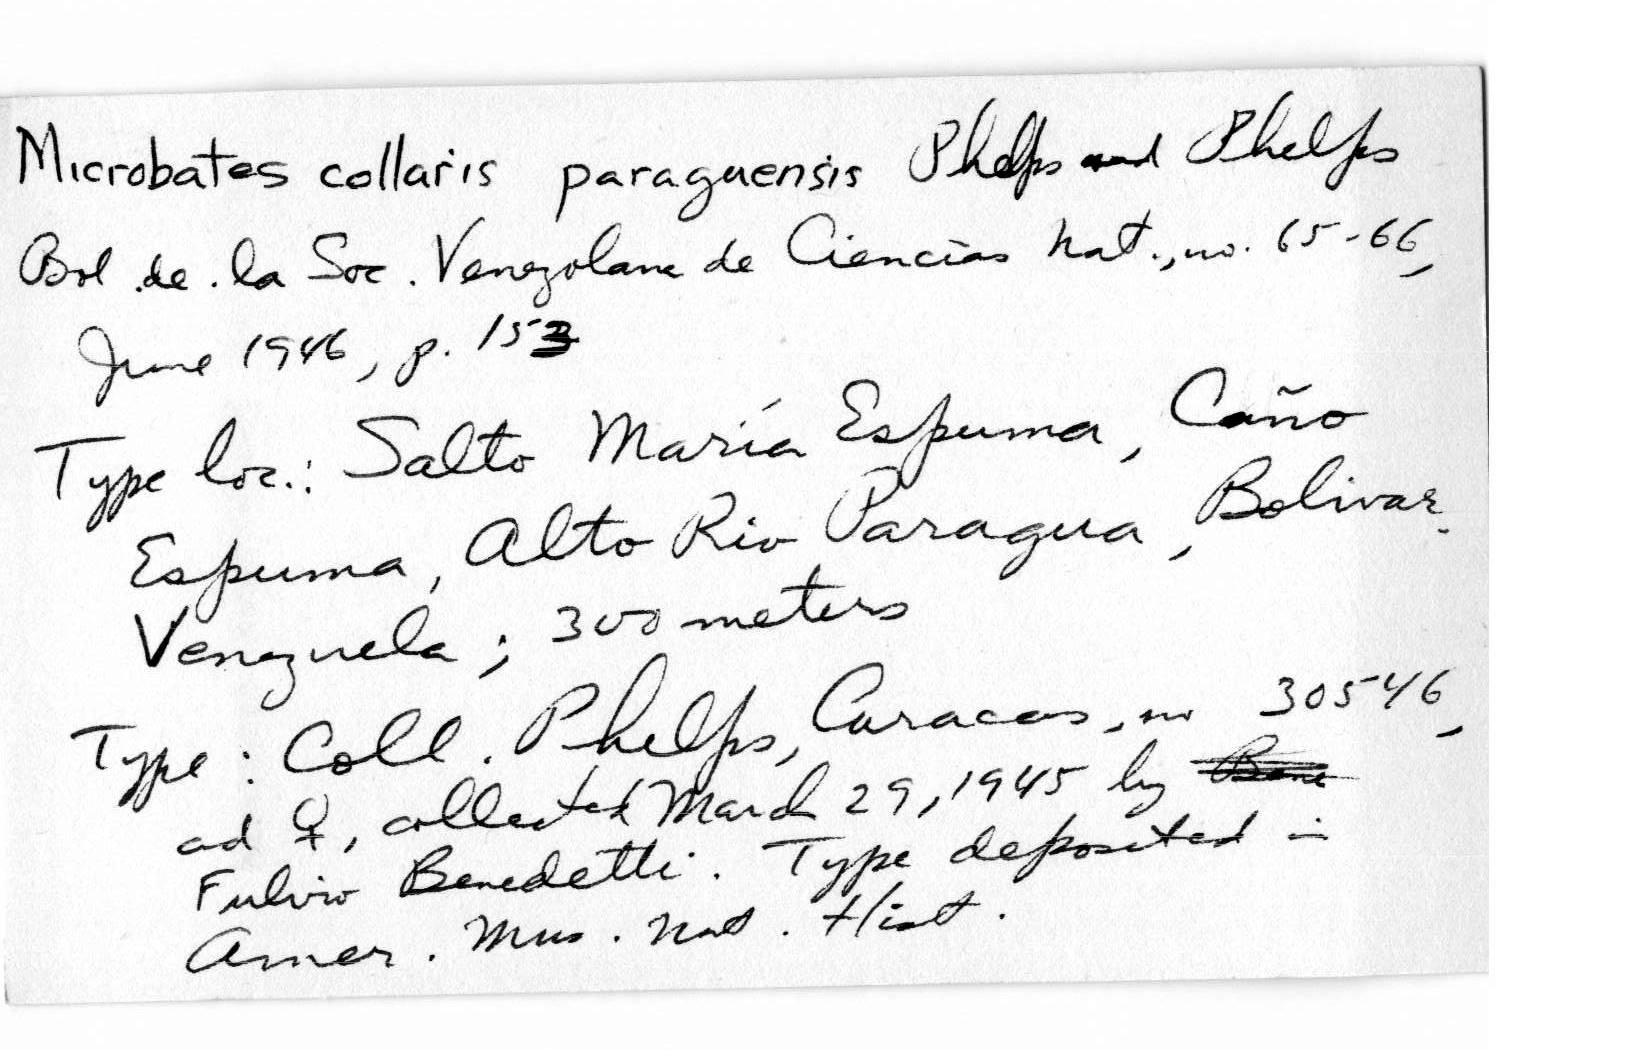 Microbates collaris paraguensis Phelps and Phelps
Bol. de. la Soc. Venezolana de Ciencias Nat., no. 65-66,
June 1946, p. 153
Type loc.: Salto María Espuma, Caño
Espuma, Alto Rio Paragua, Bolivar.
Venezuela; 300 meters
Type: Coll. Phelps, Caracas, no 30546,
ad ♀, collected March 29, 1945 by Bene
Fulvio Benedetti. Type deposited in
Amer. Mus. Nat. Hist.